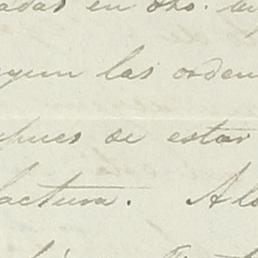 adas en dho.
egun las orden
spues de estar
factura. Al